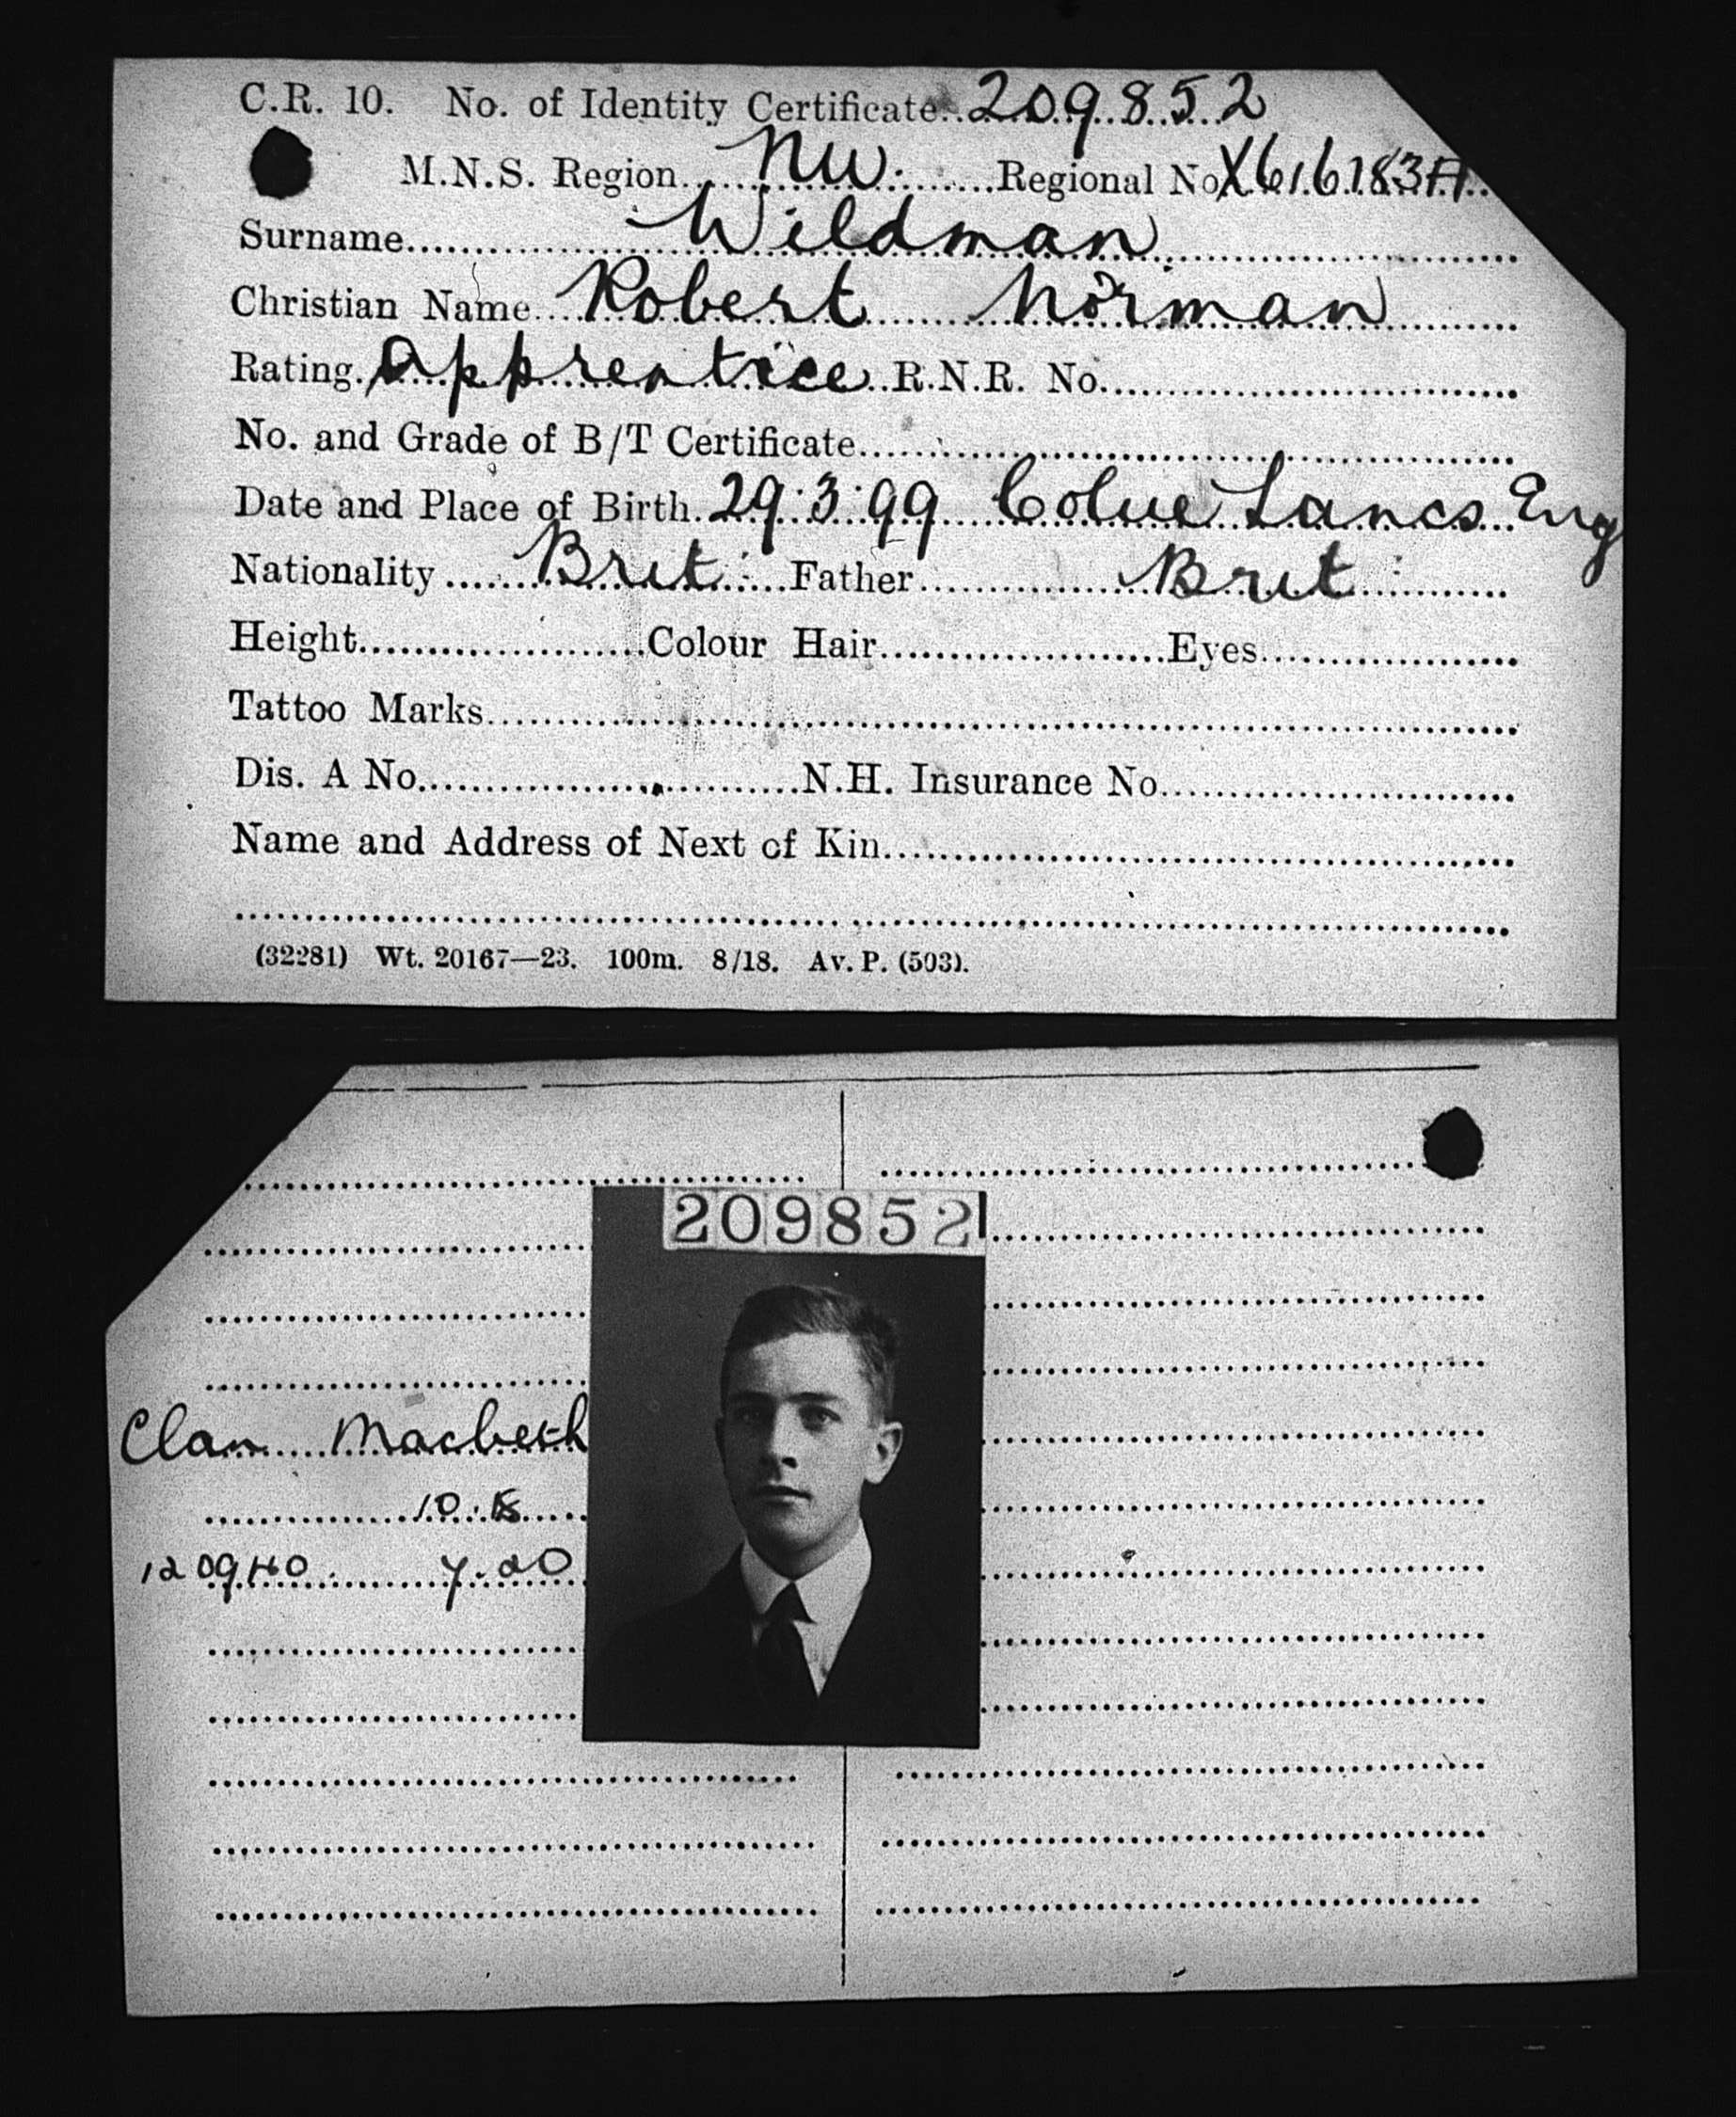 C.R. 10. No. of Identity Certificate 209852
M.N.S. Region NW. Regional No X616183A
Surname Wildman
Christian Name Robert Norman
Rating Apprentice R.N.R. No.
No. and Grade of B/T Certificate
Date and Place of Birth 29.3.99 Colne Lancs Eng
Nationality Brit Father Brit
Height Colour Hair Eyes
Tattoo Marks
Dis. A No. N.H. Insurance No.
Name and Address of Next of Kin
(32281) Wt. 20167—23. 100m. 8/18. Av. P. (503).
209852
Clan Macbeth
10.18
120940. 7.20